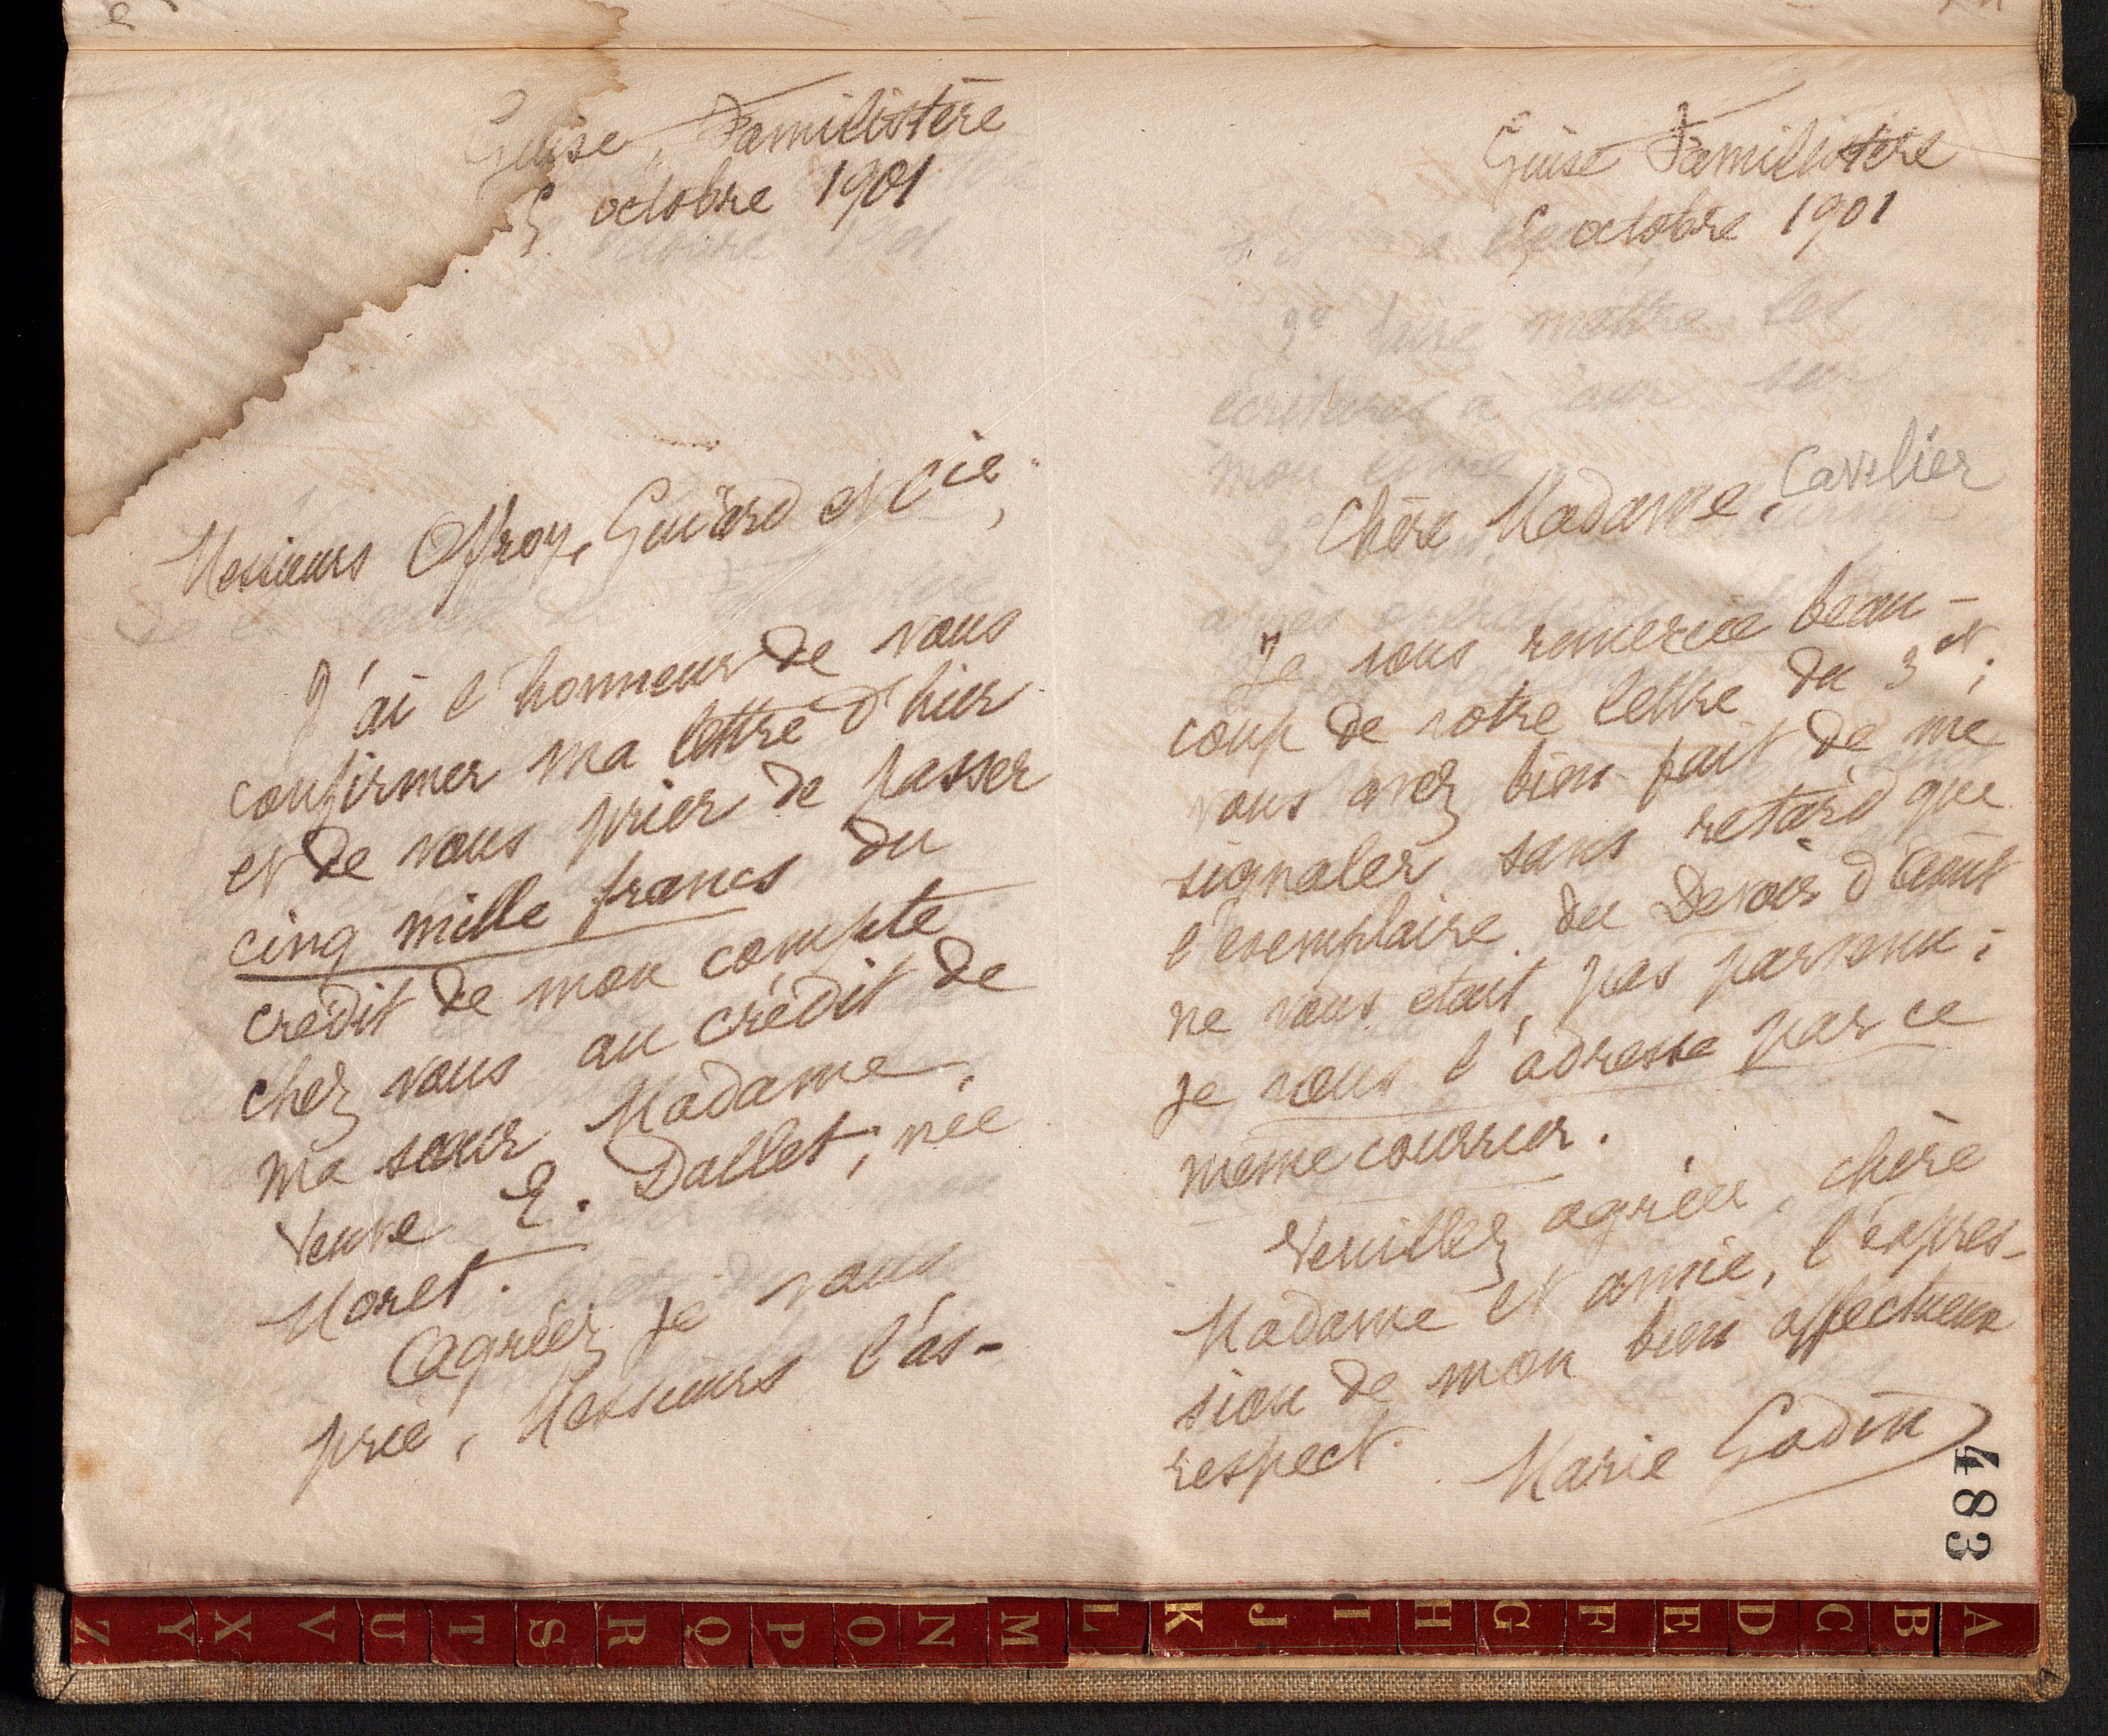 Guise, Familistère
5 octobre 1901
Messieurs Offroy, Guiard et Cie,
J'ai l'honneur de vous
confirmer ma lettre d'hier
et de vous prier de passer
cinq mille francs du
crédit de mon compte
chez vous au crédit de
ma sœur Madame
Veuve E. Dallet, née
Moret.
Agréez, je vous
prie, Messieurs l'as-
Guise Familistère
5 octobre 1901
Chère Madame, Cavelier
Je vous remercie beau-
coup de votre lettre du 3 ct;
vous avez bien fait de me
signaler sans retard que
l'exemplaire du Devoir d'Août
ne vous était pas parvenu;
je vous l'adresse par ce
même courrier.
Veuillez agréer, chère
Madame et amie, l'expres-
sion de mon bien affectueux
respect.
Marie Godin
483
Z Y X V U T S R Q P O N M L K J I H G F E D C B A